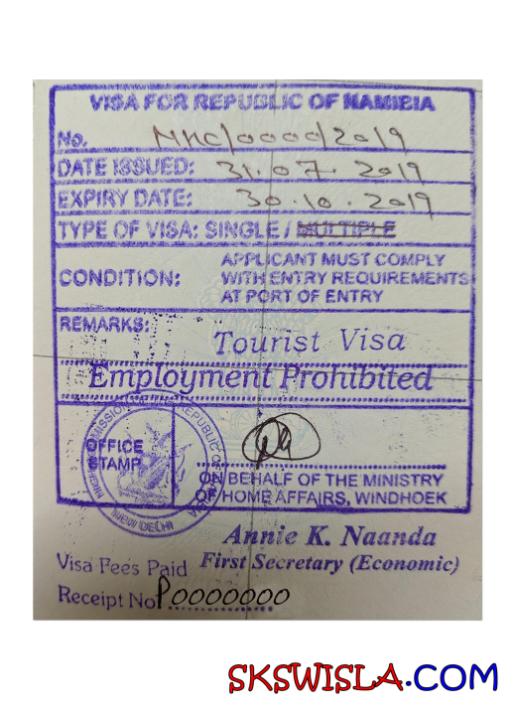 VISA FOR REPUBLIC OF NAMIBIA
No. NHC/0000/2019
DATE ISSUED: 31.07.2019
EXPIRY DATE: 30.10.2019
TYPE OF VISA: SINGLE / MULTIPLE
CONDITION: APPLICANT MUST COMPLY
WITH ENTRY REQUIREMENTS
AT PORT OF ENTRY
REMARKS: Tourist Visa
Employment Prohibited
OFFICE
STAMP
NEW DELHI
ON BEHALF OF THE MINISTRY
OF HOME AFFAIRS, WINDHOEK
Annie K. Naanda
First Secretary (Economic)
Visa Fees Paid
Receipt No P0000000
SKSWISLA.COM